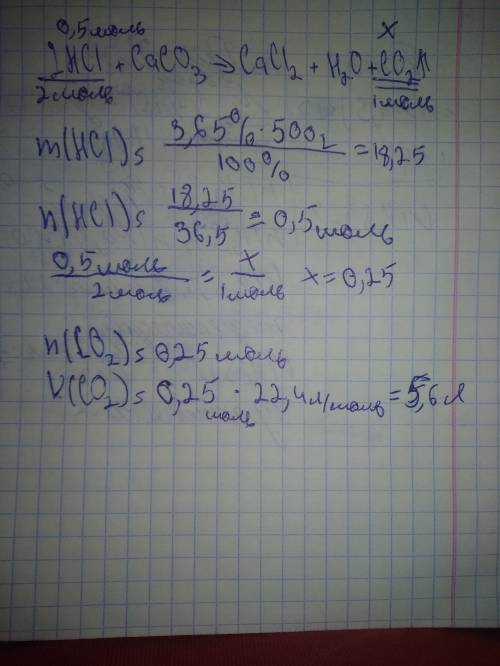 0,5 моль x
2HCl + CaCO₃ ⇒ CaCl₂ + H₂O + CO₂↑
2 моль 1 моль
m(HCl) = 3,65% · 500г / 100% = 18,25
n(HCl) = 18,25 / 36,5 = 0,5 моль
0,5 моль / 2 моль = x / 1 моль x = 0,25
n(CO₂) = 0,25 моль
V(CO₂) = 0,25 моль · 22,4 л/моль = 5,6 л